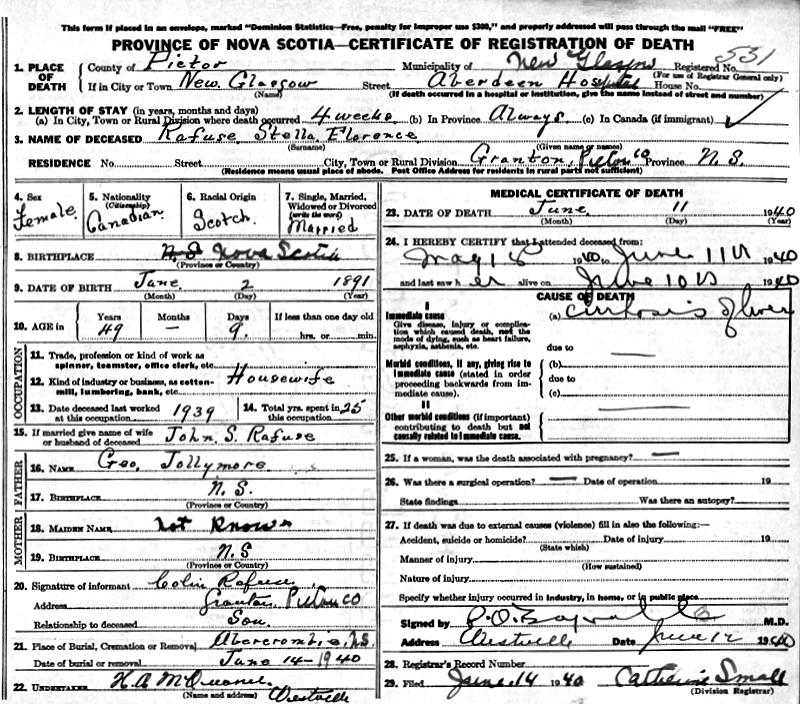 This form if placed in an envelope, marked "Dominion Statistics—Free, penalty for improper use $300," and properly addressed will pass through the mail "FREE"
PROVINCE OF NOVA SCOTIA—CERTIFICATE OF REGISTRATION OF DEATH
531
1. PLACE OF DEATH County of Pictou Municipality of New Glasgow Registered No.
(For use of Registrar General only)
If in City or Town New Glasgow Street Aberdeen Hospital House No.
(Name) (If death occurred in a hospital or institution, give the name instead of street and number)
2. LENGTH OF STAY (in years, months and days)
(a) In City, Town or Rural Division where death occurred 4 weeks (b) In Province Always (c) In Canada (if immigrant)
3. NAME OF DECEASED Rafuse Stella Florence
(Surname) (Given name or names)
RESIDENCE No. Street City, Town or Rural Division Granton, Pictou Co Province N. S.
(Residence means usual place of abode. Post Office Address for residents in rural parts not sufficient)
4. Sex Female
5. Nationality (Citizenship) Canadian
6. Racial Origin Scotch
7. Single, Married, Widowed or Divorced (write the word) Married
8. BIRTHPLACE N.S. Nova Scotia
(Province or Country)
9. DATE OF BIRTH June 2 1891
(Month) (Day) (Year)
10. AGE in Years 49 Months — Days 9. If less than one day old hrs. or min.
OCCUPATION
11. Trade, profession or kind of work as spinner, teamster, office clerk, etc.
12. Kind of industry or business, as cotton-mill, lumbering, bank, etc. Housewife
13. Date deceased last worked at this occupation 1939 14. Total yrs. spent in this occupation 25
15. If married give name of wife or husband of deceased John S. Rafuse
FATHER
16. NAME Geo. Jollymore
17. BIRTHPLACE N. S.
(Province or Country)
MOTHER
18. MAIDEN NAME Not Known
19. BIRTHPLACE N. S
(Province or Country)
20. Signature of informant Colin Rafuse
Address Granton, Pictou CO
Relationship to deceased Son.
21. Place of Burial, Cremation or Removal Abercrombie, N.S.
Date of burial or removal June 14-1940
22. UNDERTAKER H. A. Westville
(Name and address)
MEDICAL CERTIFICATE OF DEATH
23. DATE OF DEATH June 11 1940
(Month) (Day) (Year)
24. I HEREBY CERTIFY that I attended deceased from:
May 1940 to June 11th 1940
and last saw her alive on June 10th 1940
CAUSE OF DEATH
I
Immediate cause (a) Cirrhosis of liver
Give disease, injury or complication which caused death, not the mode of dying, such as heart failure, asphyxia, asthenia, etc.
due to —
Morbid conditions, if any, giving rise to immediate cause (stated in order proceeding backwards from immediate cause).
(b)
due to
(c)
II
Other morbid conditions (if important) contributing to death but not causally related to immediate cause.
25. If a woman, was the death associated with pregnancy? —
26. Was there a surgical operation? — Date of operation 19
State findings Was there an autopsy?
27. If death was due to external causes (violence) fill in also the following:—
Accident, suicide or homicide? Date of injury 19
(State which)
Manner of injury
(How sustained)
Nature of injury
Specify whether injury occurred in industry, in home, or in public place
Signed by M.D.
Address Westville Date June 12 1940
28. Registrar's Record Number
29. Filed June 14 1940 Catherine Small
(Division Registrar)